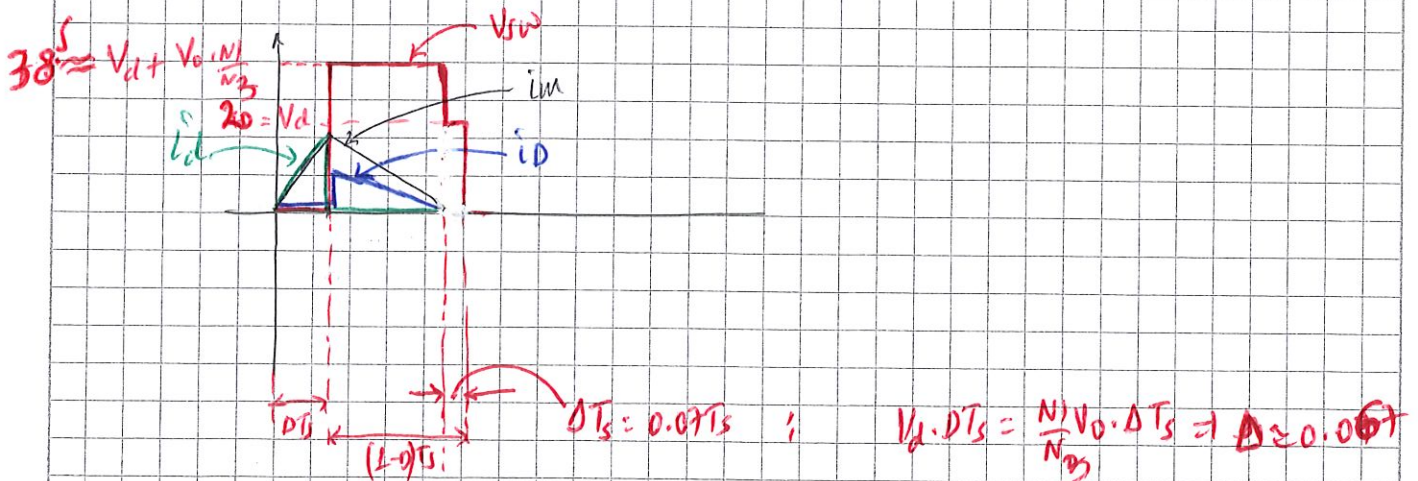 Vsw
38.5 ≈ Vd + Vo · N1/N3
im
20 = Vd
id
iD
DTs
(1-D)Ts
ΔTs = 0.07Ts ; Vd · DTs = N1/N3 Vo · ΔTs ⇒ Δ ≈ 0.067